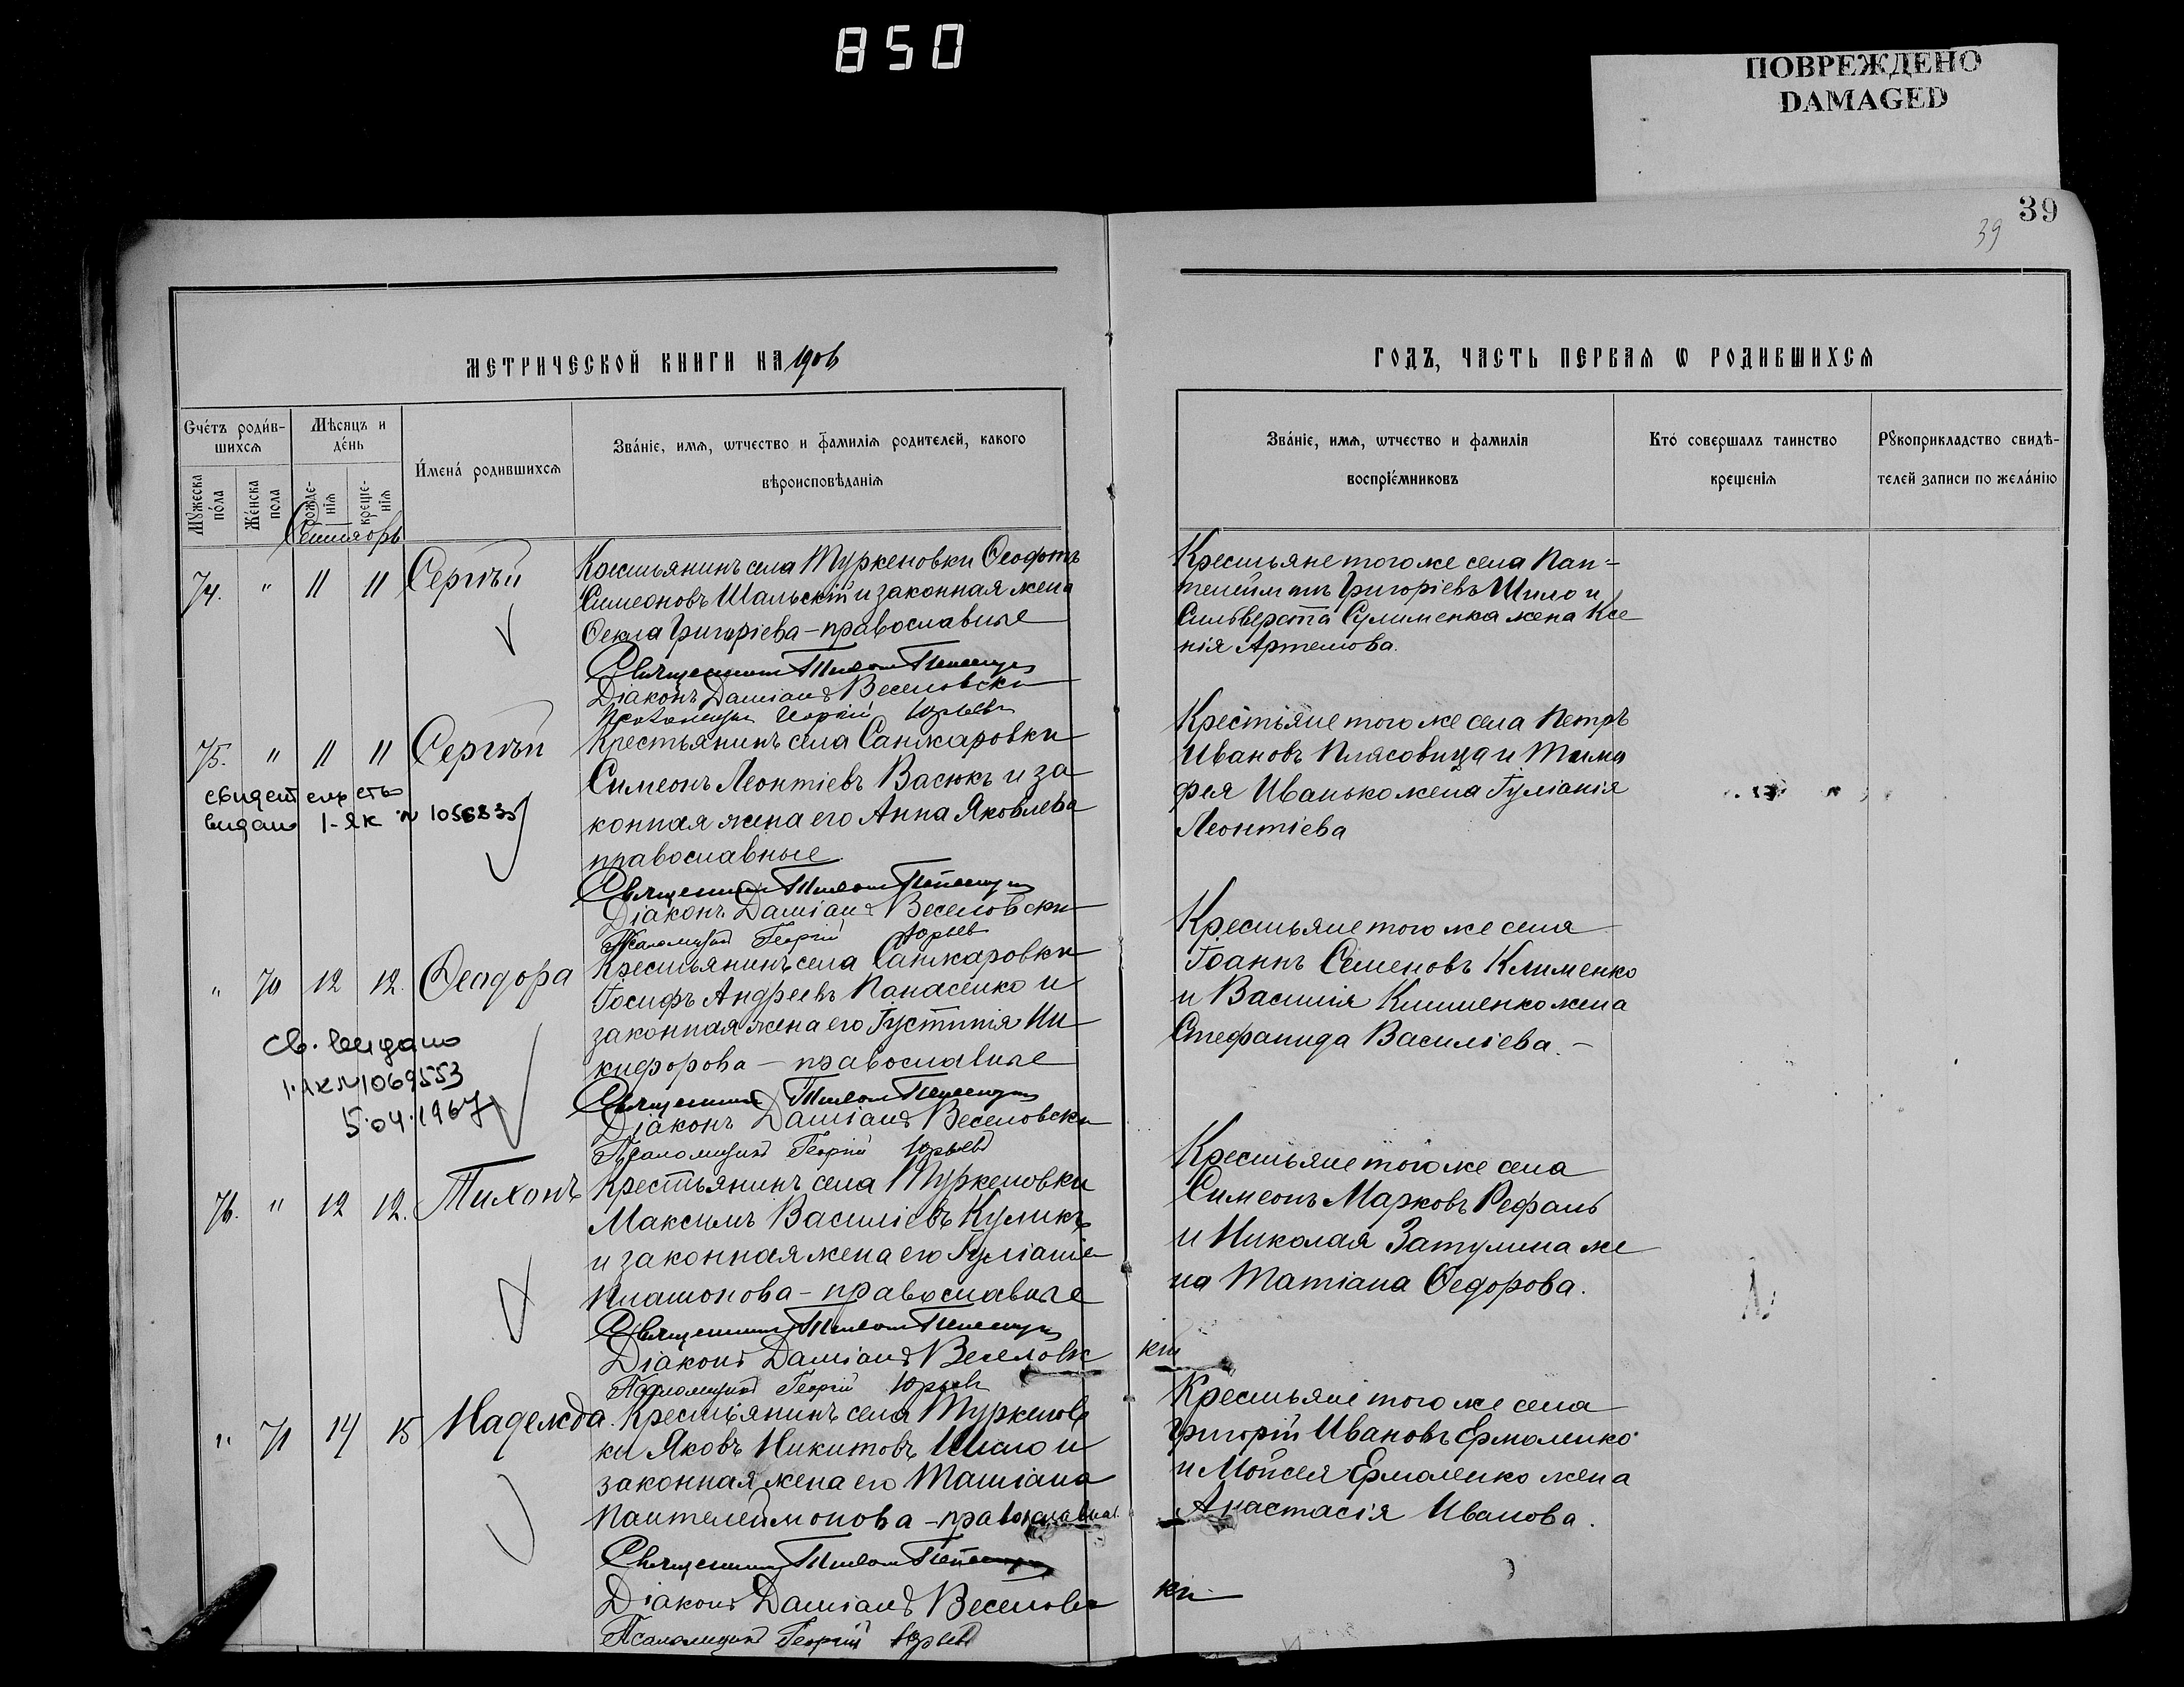 850
ПОВРЕЖДЕНО
DAMAGED
39
39
МЕТРИЧЕСКОЙ КНИГИ НА 1906
ГОДЪ, ЧАСТЬ ПЕРВАѦ Ѡ РОДИВШИХСѦ
Счетъ родив-
шихсѧ
Мꙋжеска
пола
Женска
пола
Мѣсѧцъ и
день
рожде-
нїѧ
креще-
нїѧ
Имена родившихсѧ
Званїе, имѧ, ѡтчество и фамилїѧ родителей, какого
вѣроисповѣданїѧ
Званїе, имѧ, ѡтчество и фамилїѧ
воспрїемниковъ
Кто совершалъ таинство
крещенїѧ
Рꙋкоприкладство свидѣ-
телей записи по желанїю
Сентябрь
74. " 11 11 Сергѣй
Крестьянинъ села Туркеновки
Симеоновъ Шальскій и законная жена
Ѳекла Григоріева - православные
Священник Тихон
Діаконъ Даміанъ Веселовски
Георгій Юрьевъ
Крестьяне того же села Пан-
Григоріевъ Шило и
Сулименка жена Ксе
нія Артемова.
75. " 11 11 Сергѣй
свидетельство
видано 1-ЯК №
Крестьянинъ села Санжаровки
Симеонъ Леонтіевъ Васюкъ и за
конная жена его Анна Яковлева
православные.
Священник Тихон
Діаконъ Даміанъ Веселовски
Псаломщикъ Георгій Юрьев
Крестьяне того же села Петръ
Ивановъ Плясовица и Тимо
фея Иванько жена Іуліанія
Леонтіева
" 70 12 12. Ѳеодора
св. видано
1-ЯК № 1069553
5.04.1967
Крестьянинъ села Санжаровки
Іосифъ Андреевъ Панасенко и
законная жена его Іустинія Ни
кифорова - православные
Священник Тихон
Діаконъ Даміанъ Веселовски
Псаломщикъ Георгій Юрьевъ
Крестьяне того же села
Іоаннъ Семеновъ Клименко
и Василія Клименко жена
Стефанида Василіева. -
76. " 12 12. Тихонъ
Крестьянинъ села Туркеновки
Максимъ Василіевъ Куликъ
и законная жена его Іуліанія
Платонова - православные
Священник Тихон
Діаконъ Даміанъ Веселовс
кій
Псаломщикъ Георгій Юрьевъ
Крестьяне того же села
Симеонъ Марковъ
и Николая Затулина же
на Татіана Ѳедорова.
" 71 14 15 Надежда.
Крестьянинъ села Туркенов
ки Яковъ Никитовъ Шило и
законная жена его Татіана
Пантелеймонова - православныя
Священник Тихон
Діаконъ Даміанъ Веселовс
кій
Псаломщикъ Георгій Юрьевъ
Крестьяне того же села
Григорій Ивановъ Ермоленко
и Мойсея Ермоленко жена
Анастасія Иванова.